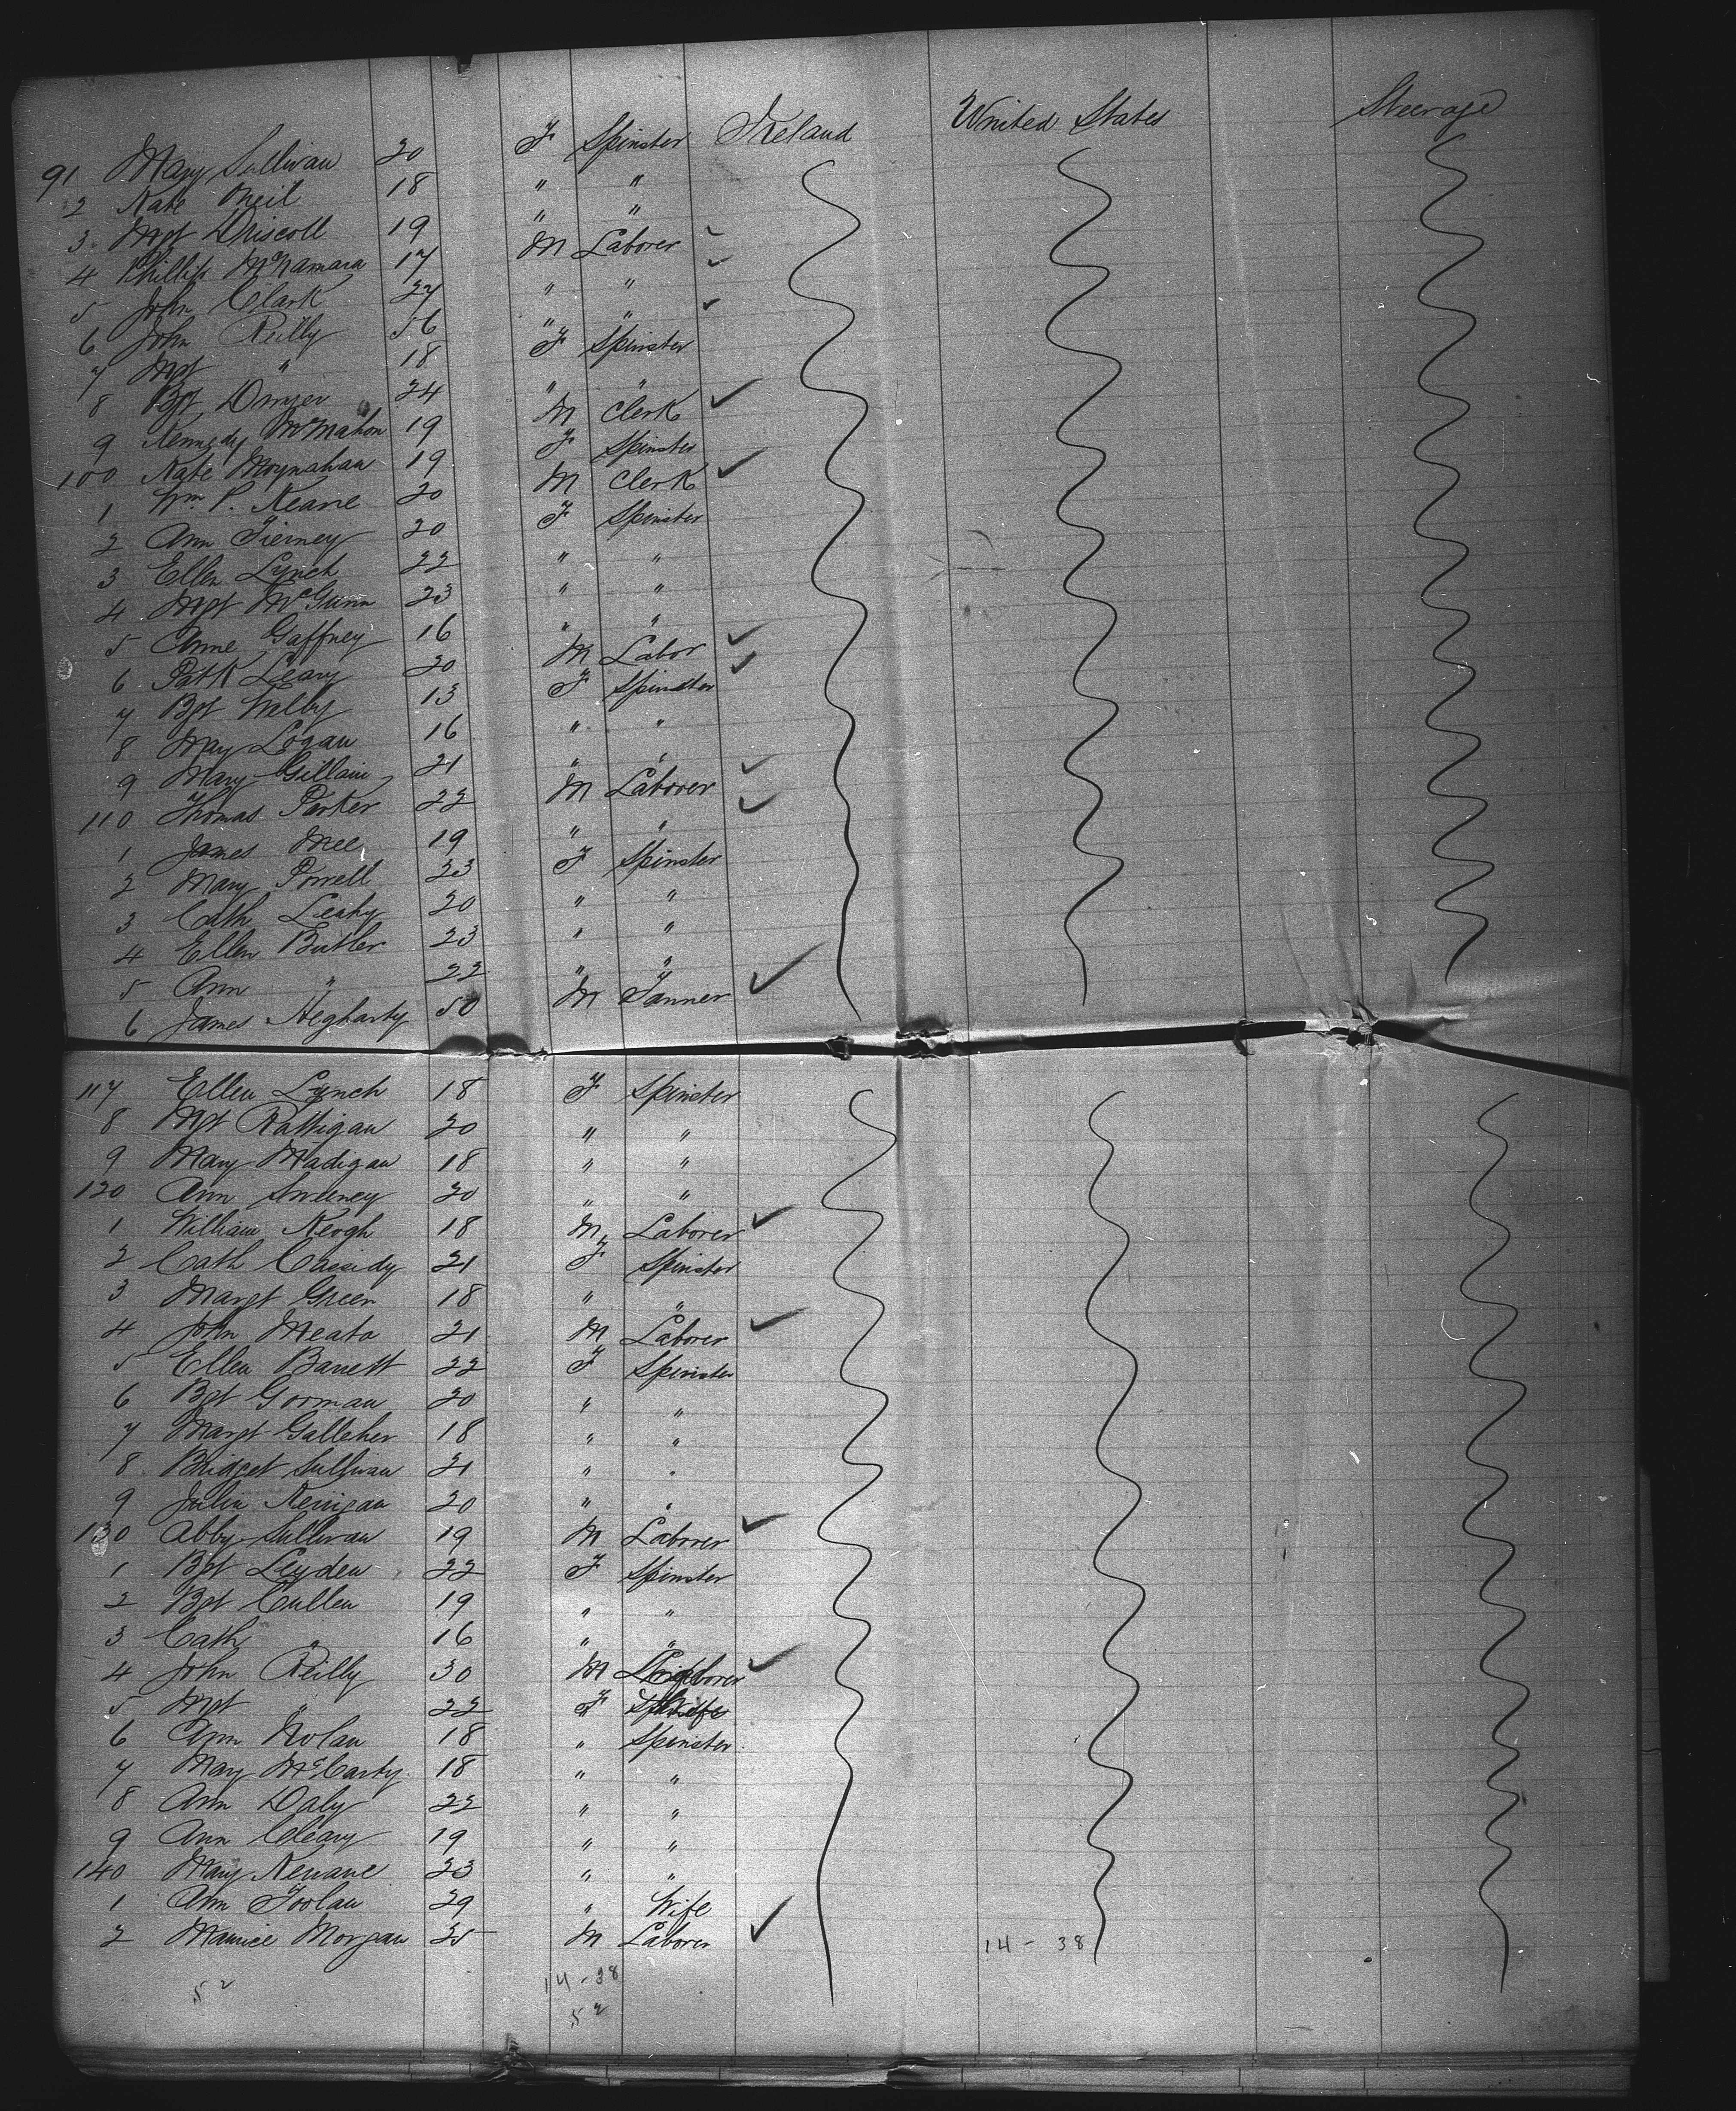 91 Mary Sullivan 20 F Spinster Ireland United States Steerage
2 Kate Neil 18 " "
3 Mgt Driscoll 19 " "
4 Phillip McNamara 17 M Laborer
5 John Clark 27 " "
6 John Reilly 56 " "
7 Mgt " 18 F Spinster
8 Bgt Dwyer 24 " "
9 Kennedy McMahon 19 M Clerk
100 Kate Moynahan 19 F Spinster
1 Wm. P. Keane 20 M Clerk
2 Ann Tierney 20 F Spinster
3 Ellen Lynch 22 " "
4 Mgt McGunn 23 " "
5 Anne Gaffney 16 " "
6 Patk Leary 20 M Labor
7 Bgt Welby 13 F Spinster
8 May Logan 16 " "
9 Mary Gillain 21 " "
110 Thomas Parker 22 M Laborer
1 James Mee 19 " "
2 Mary Powell 23 F Spinster
3 Cath Leahy 20 " "
4 Ellen Butler 23 " "
5 Ann " 22 " "
6 James Hegharty 50 M Tanner
117 Ellen Lynch 18 F Spinster
8 Mgt Rattigan 20 " "
9 Mary Madigan 18 " "
120 Ann Sweeney 20 " "
1 William Keogh 18 M Laborer
2 Cath Cassidy 21 F Spinster
3 Margt Green 18 " "
4 John Meata 21 M Laborer
5 Ellen Barrett 22 F Spinster
6 Bgt Gorman 20 " "
7 Margt Galleher 18 " "
8 Bridget Sullivan 21 " "
9 Julia Kerrigan 20 " "
130 Abby Sullivan 19 M Laborer
1 Bgt Leyden 22 F Spinster
2 Bgt Cullen 19 " "
3 Cath " 16 " "
4 John Reilly 30 M Laborer
5 Mgt " 22 F Wife
6 Ann Nolan 18 " Spinster
7 Mary McCarty 18 " "
8 Ann Daly 22 " "
9 Ann Cleary 19 " "
140 Mary Kewane 23 " "
1 Ann Toolan 29 " Wife
2 Maurice Morgan 25 M Laborer
14 - 38
52 14 - 38
52